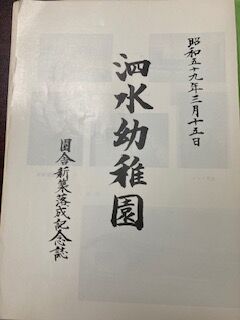 昭和五十九年三月十五日
泗水幼稚園
園舎新築落成記念誌